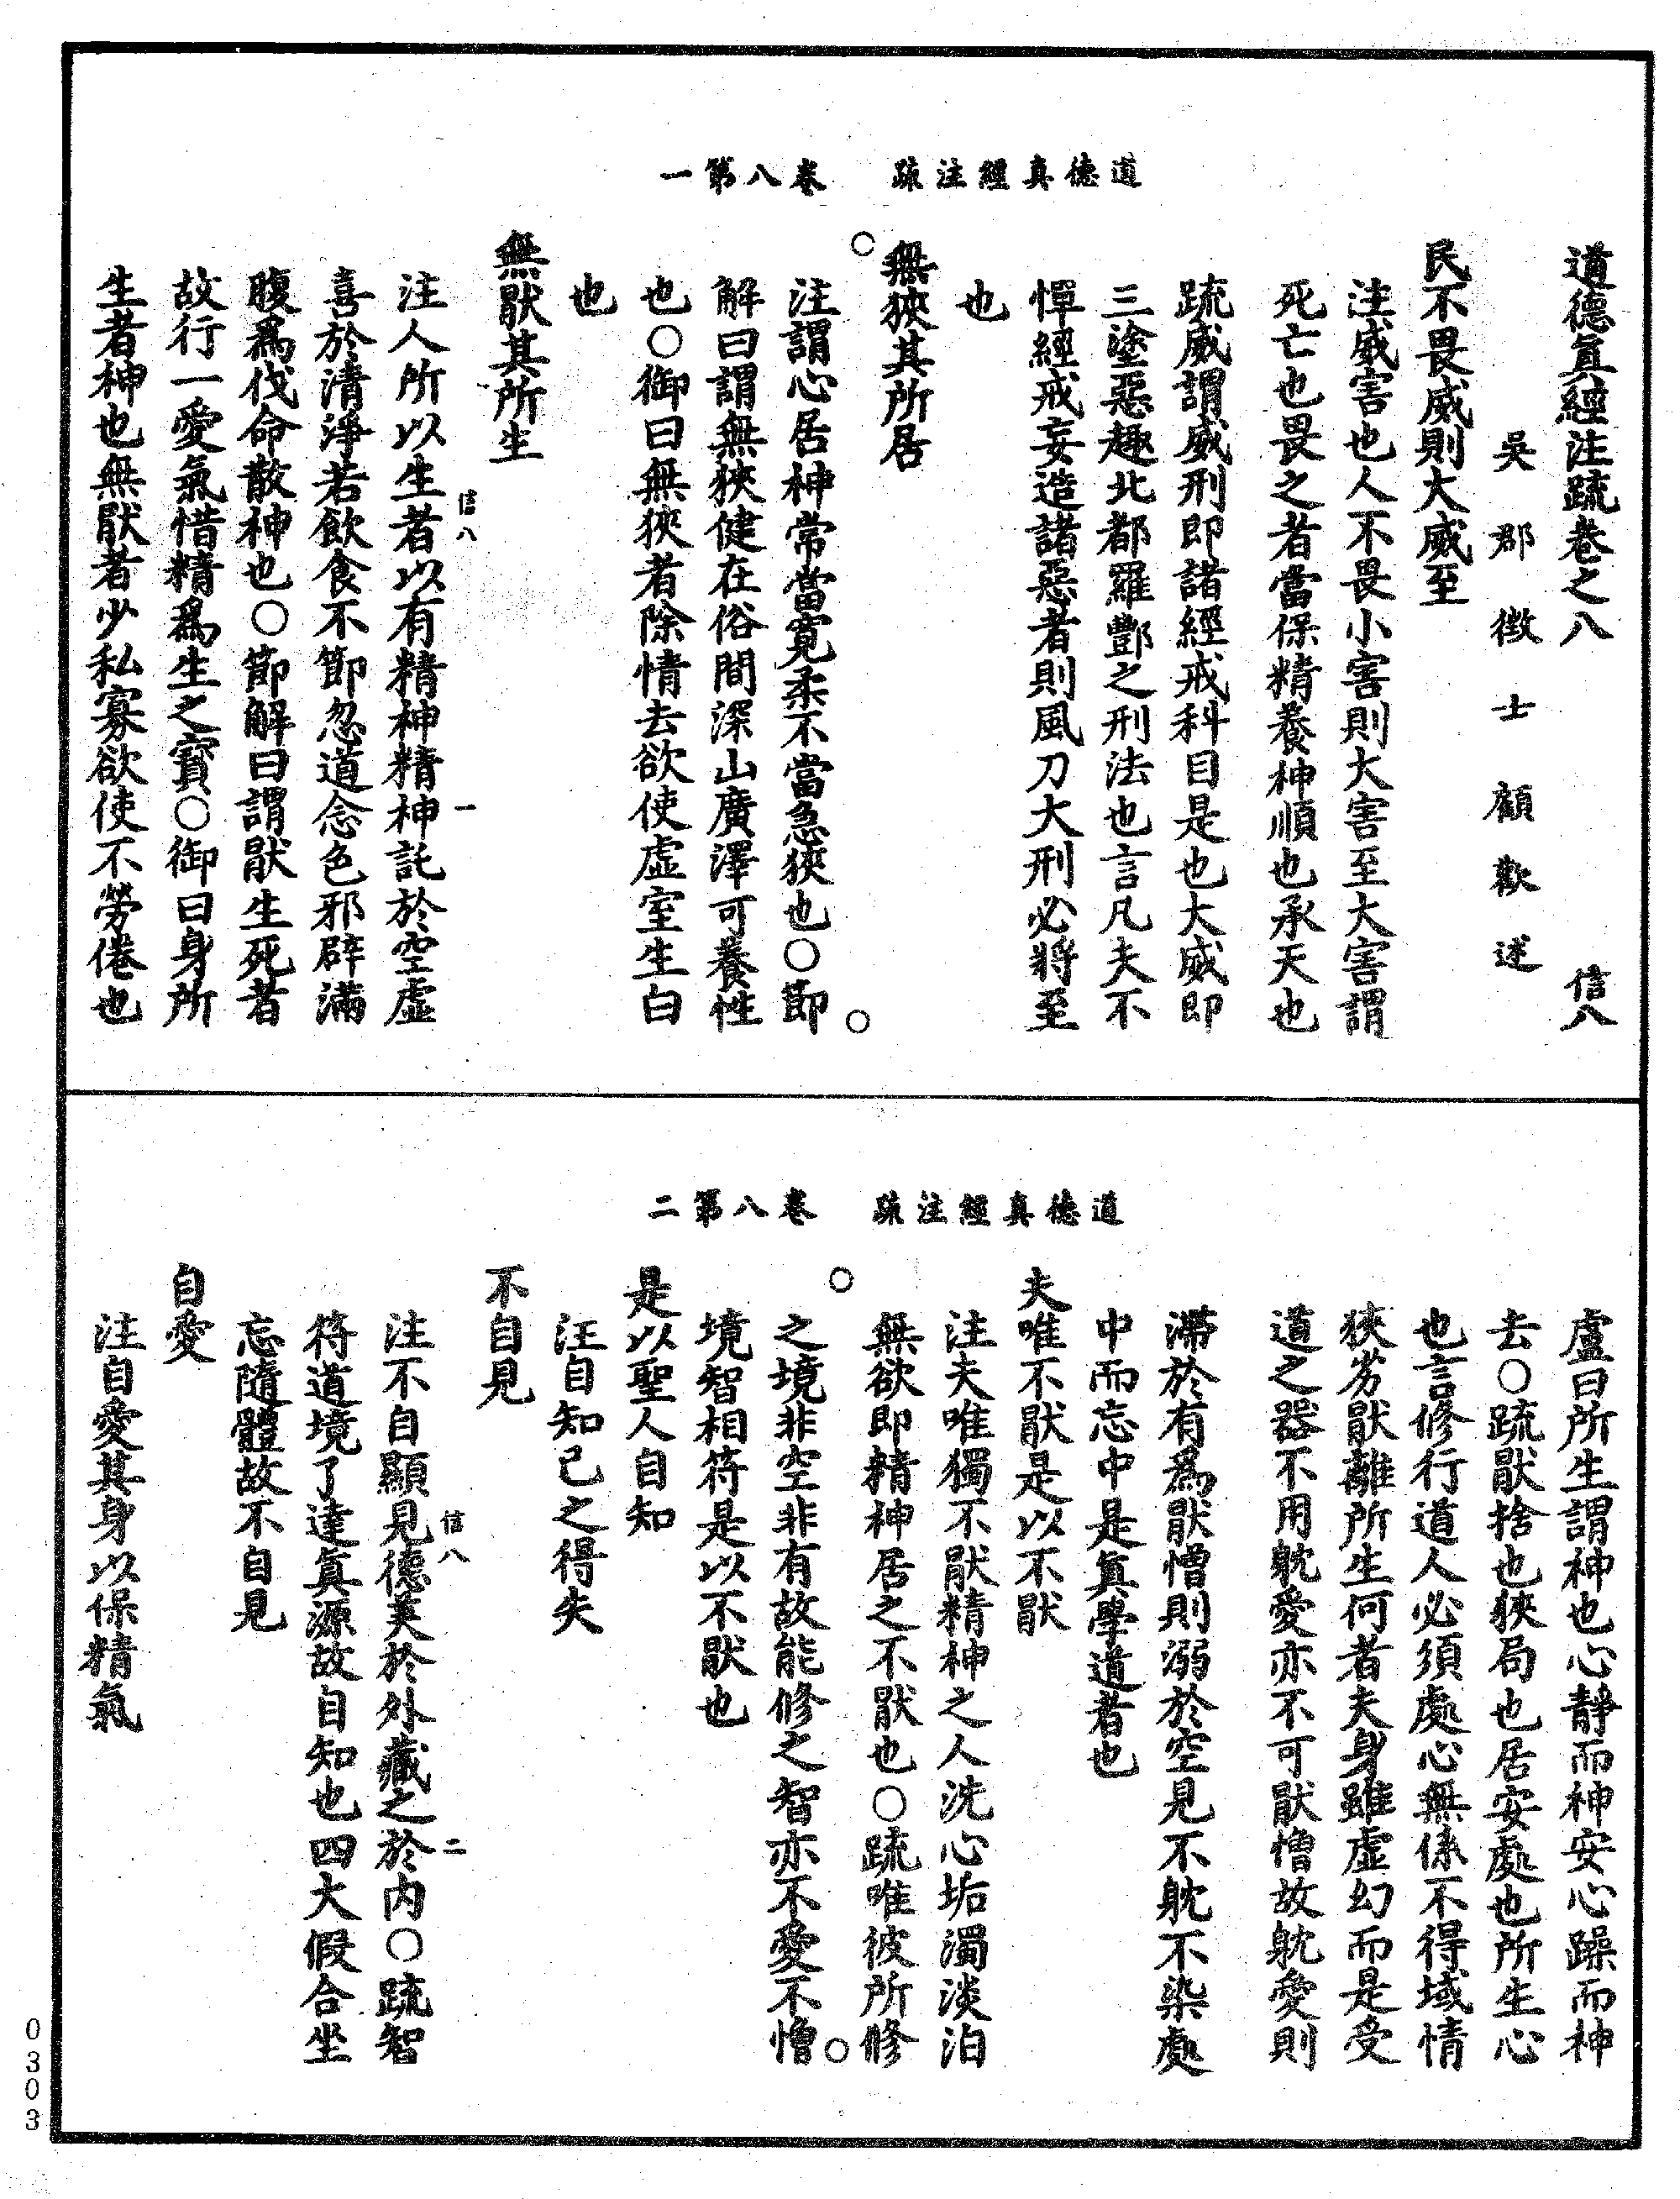 道德真經注疏　卷八第一
道德眞經注疏卷之八　信八
吳郡徵士顧歡述
民不畏威則大威至
注威害也人不畏小害則大害至大害謂
死亡也畏之者當保精養神順也承天也
疏威謂威刑即諸經戒科目是也大威即
三塗惡趣北都羅酆之刑法也言凡夫不
憚經戒妄造諸惡者則風刀大刑必將至
也
無狹其所居
注謂心居神常當寬柔不當急狹也○節
解曰謂無狹健在俗間深山廣澤可養性
也○御曰無狹者除情去欲使虛室生白
也
無猒其所生
注人所以生者以有精神精神託於空虛
信八　一
喜於清淨若飲食不節忽道念色邪辟滿
腹爲伐命散神也○節解曰謂猒生死者
故行一愛氣惜精爲生之寳○御曰身所
生者神也無猒者少私寡欲使不勞倦也
道德真經注疏　卷八第二
盧曰所生謂神也心靜而神安心躁而神
去○疏猒捨也狹局也居安處也所生心
也言修行道人必須處心無係不得域情
狹劣猒離所生何者夫身雖虛幻而是受
道之器不用躭愛亦不可猒憎故躭愛則
滯於有爲猒憎則溺於空見不躭不染處
中而忘中是眞學道者也
夫唯不猒是以不猒
注夫唯獨不猒精神之人洗心垢濁淡泊
無欲即精神居之不猒也○疏唯彼所修
之境非空非有故能修之智亦不愛不憎
境智相符是以不猒也
是以聖人自知
注自知己之得失
不自見
注不自顯見德美於外藏之於内○疏智
信八　二
符道境了達眞源故自知也四大假合坐
忘隨體故不自見
自愛
注自愛其身以保精氣
0303